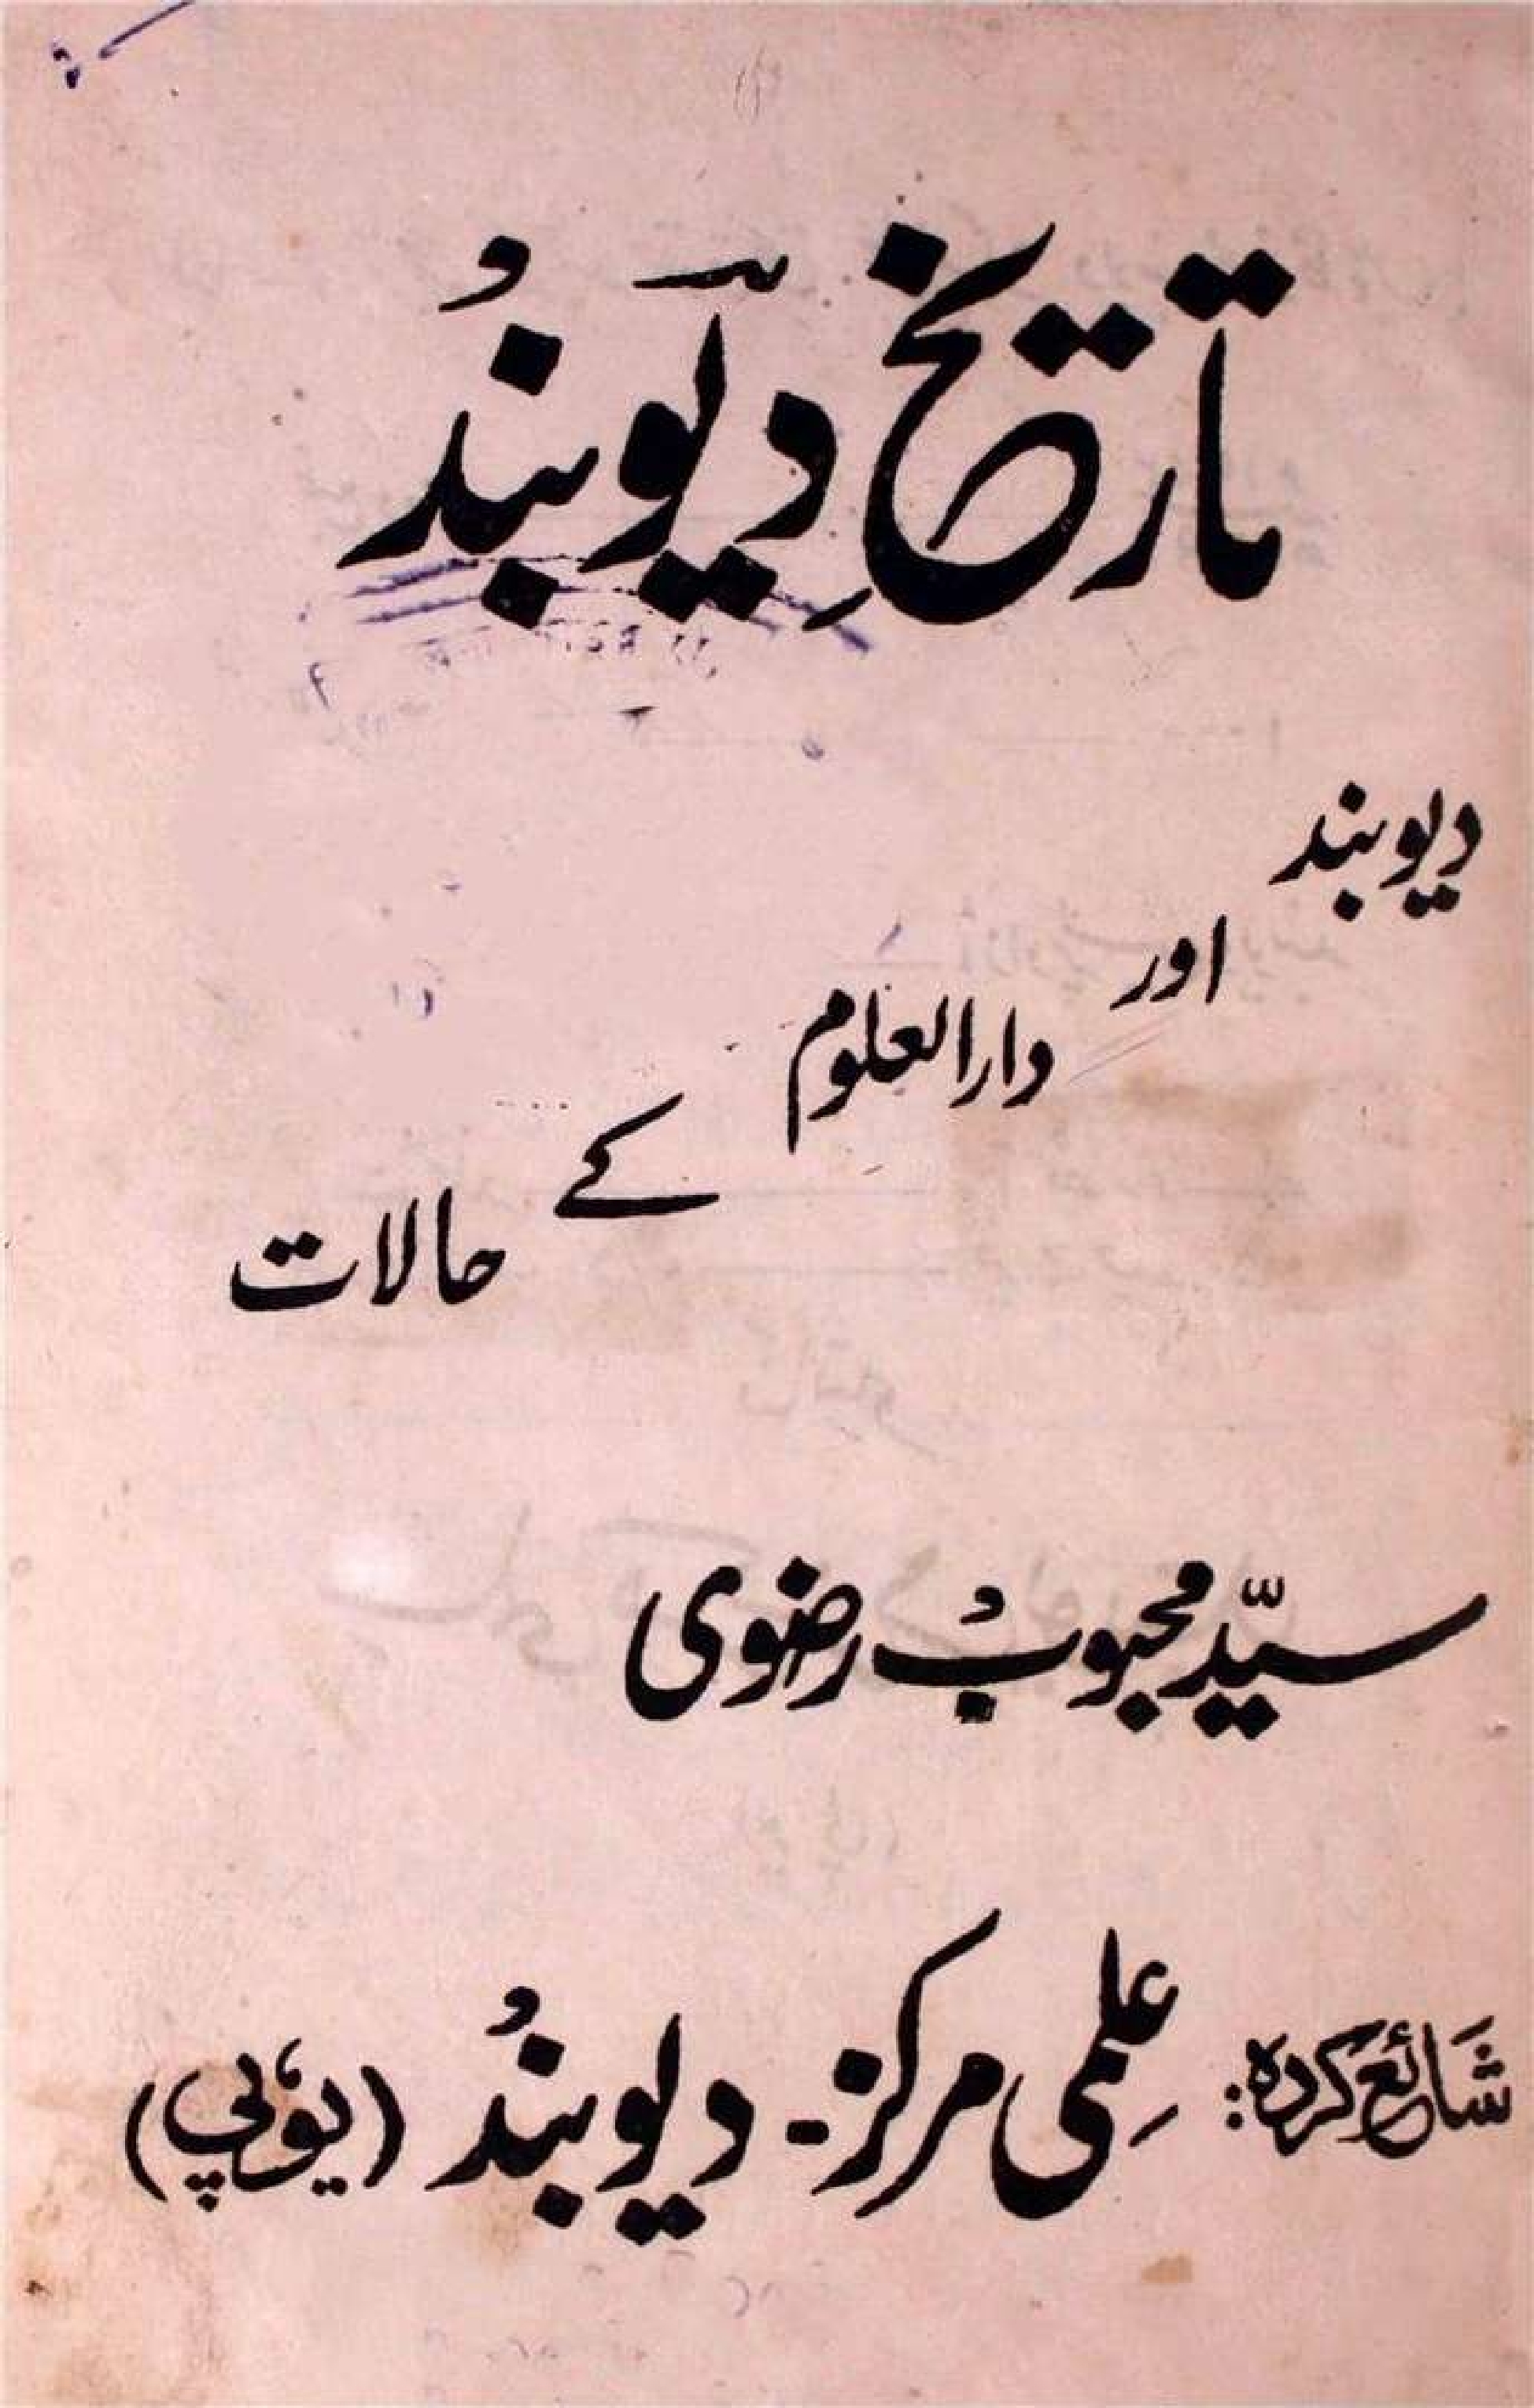 تاریخِ دیوبند
دیوبند
اور
دارالعلوم
کے
حالات
سیّد محبوب رضوی
شائع کردہ: عِلمی مرکز - دیوبند (یو، پی)